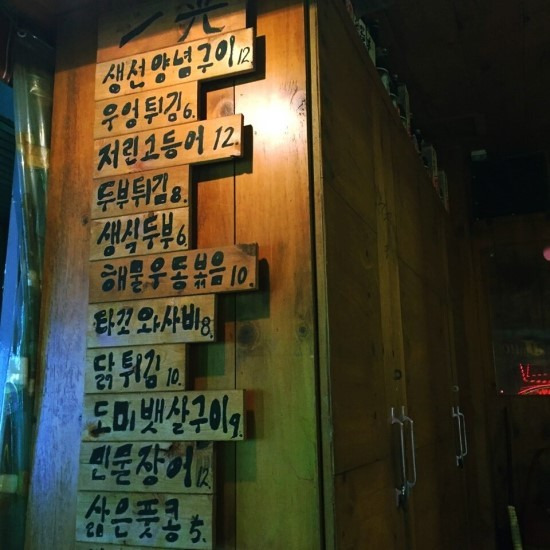 생선양념구이 12.
우엉튀김 6.
저린고등어 12
두부튀김 8.
생식두부 6.
해물우동볶음 10.
타꼬와사비 8.
닭튀김 10.
도미뱃살구이 9.
민물장어 12.
삶은풋콩 5.